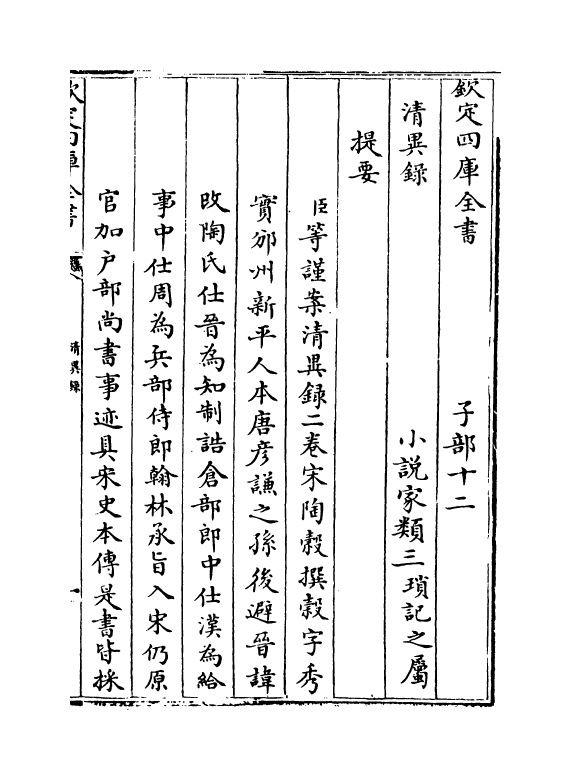 欽定四庫全書　子部十二
清異錄　小說家類三瑣記之屬
提要
臣等謹案清異録二卷宋陶榖撰榖字秀
實邠州新平人本唐彦謙之孫後避晉諱
改陶氏仕晉為知制誥倉部郎中仕漢為給
事中仕周為兵部侍郎翰林承旨入宋仍原
官加户部尚書事迹具宋史本傳是書皆採
欽定四庫全書　清異録　一